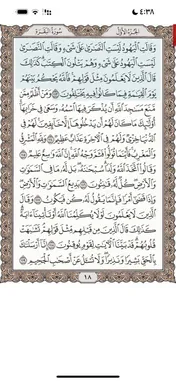 ٤:٣٨
الجزء الأول سورة البقرة
وَقَالَتِ ٱلْيَهُودُ لَيْسَتِ ٱلنَّصَٰرَىٰ عَلَىٰ شَىْءٍ وَقَالَتِ ٱلنَّصَٰرَىٰ
لَيْسَتِ ٱلْيَهُودُ عَلَىٰ شَىْءٍ وَهُمْ يَتْلُونَ ٱلْكِتَٰبَ كَذَٰلِكَ
قَالَ ٱلَّذِينَ لَا يَعْلَمُونَ مِثْلَ قَوْلِهِمْ فَٱللَّهُ يَحْكُمُ بَيْنَهُمْ
يَوْمَ ٱلْقِيَٰمَةِ فِيمَا كَانُوا۟ فِيهِ يَخْتَلِفُونَ ١١٣ وَمَنْ أَظْلَمُ مِمَّن
مَّنَعَ مَسَٰجِدَ ٱللَّهِ أَن يُذْكَرَ فِيهَا ٱسْمُهُۥ وَسَعَىٰ فِى خَرَابِهَآ
أُو۟لَٰٓئِكَ مَا كَانَ لَهُمْ أَن يَدْخُلُوهَآ إِلَّا خَآئِفِينَ لَهُمْ فِى
ٱلدُّنْيَا خِزْىٌ وَلَهُمْ فِى ٱلْءَاخِرَةِ عَذَابٌ عَظِيمٌ ١١٤ وَلِلَّهِ ٱلْمَشْرِقُ
وَٱلْمَغْرِبُ فَأَيْنَمَا تُوَلُّوا۟ فَثَمَّ وَجْهُ ٱللَّهِ إِنَّ ٱللَّهَ وَٰسِعٌ عَلِيمٌ ١١٥
وَقَالُوا۟ ٱتَّخَذَ ٱللَّهُ وَلَدًا سُبْحَٰنَهُۥ بَل لَّهُۥ مَا فِى ٱلسَّمَٰوَٰتِ
وَٱلْأَرْضِ كُلٌّ لَّهُۥ قَٰنِتُونَ ١١٦ بَدِيعُ ٱلسَّمَٰوَٰتِ وَٱلْأَرْضِ
وَإِذَا قَضَىٰٓ أَمْرًا فَإِنَّمَا يَقُولُ لَهُۥ كُن فَيَكُونُ ١١٧ وَقَالَ
ٱلَّذِينَ لَا يَعْلَمُونَ لَوْلَا يُكَلِّمُنَا ٱللَّهُ أَوْ تَأْتِينَآ ءَايَةٌ
كَذَٰلِكَ قَالَ ٱلَّذِينَ مِن قَبْلِهِم مِّثْلَ قَوْلِهِمْ تَشَٰبَهَتْ
قُلُوبُهُمْ قَدْ بَيَّنَّا ٱلْءَايَٰتِ لِقَوْمٍ يُوقِنُونَ ١١٨ إِنَّآ أَرْسَلْنَٰكَ
بِٱلْحَقِّ بَشِيرًا وَنَذِيرًا وَلَا تُسْـَٔلُ عَنْ أَصْحَٰبِ ٱلْجَحِيمِ ١١٩
١٨